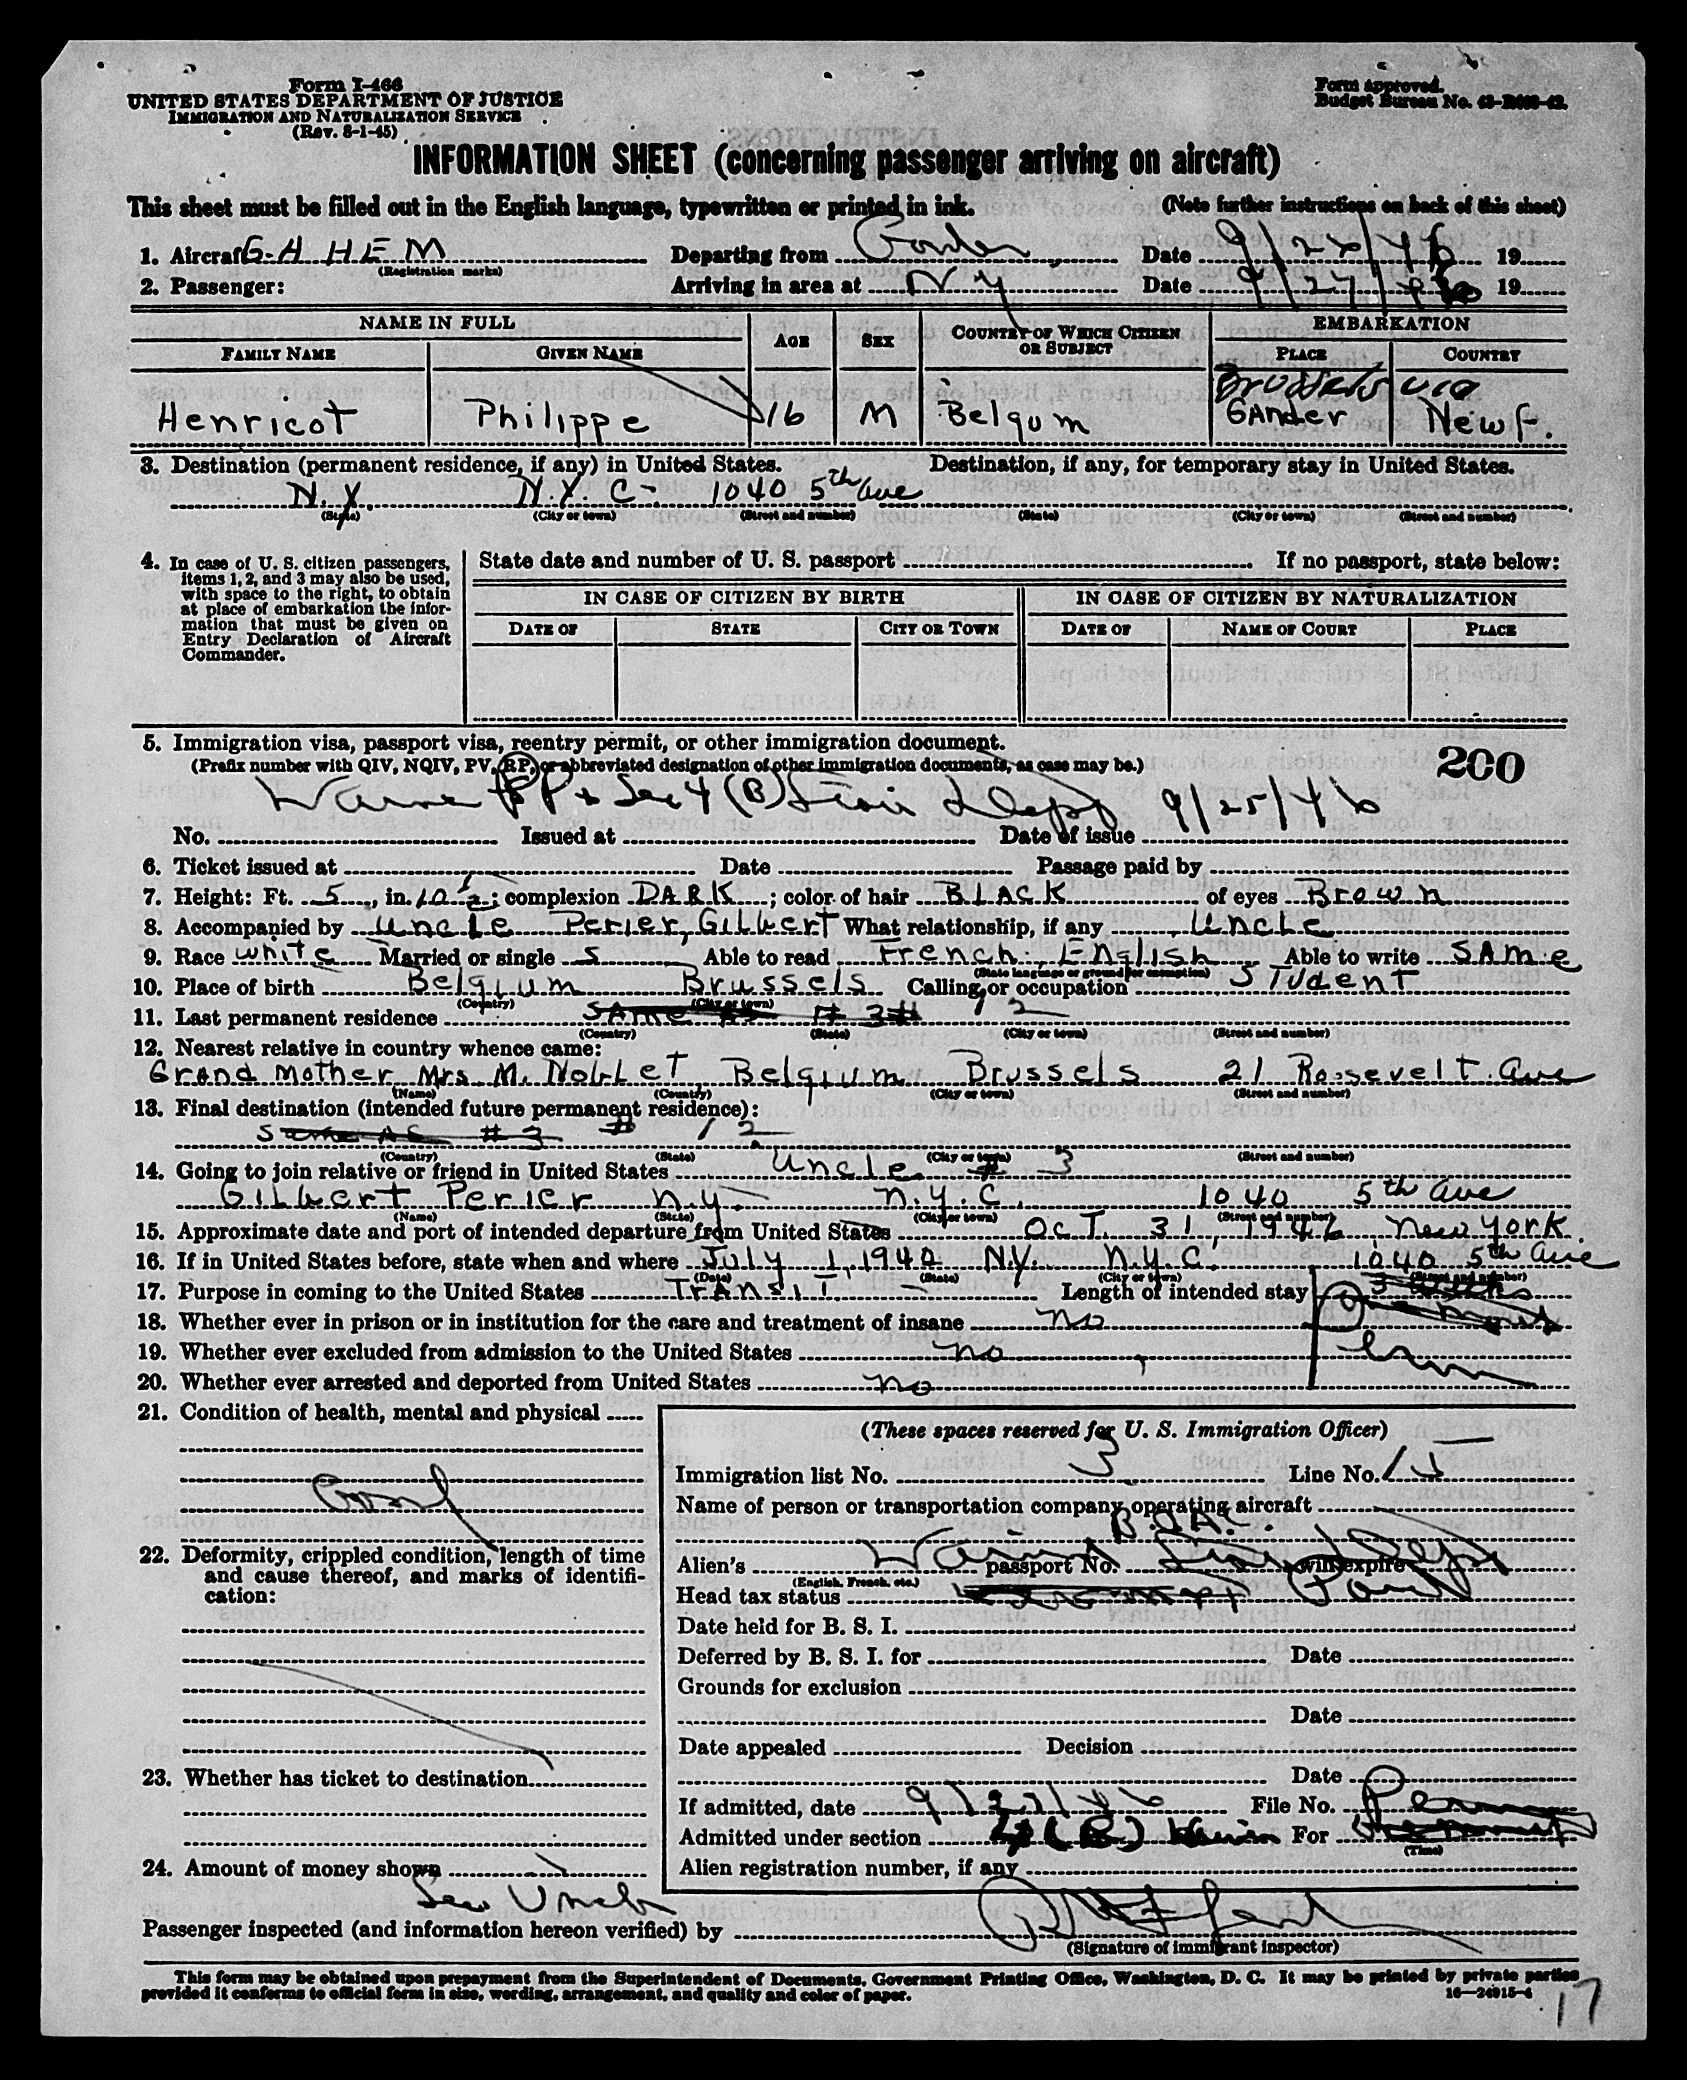 Form I-466
UNITED STATES DEPARTMENT OF JUSTICE
IMMIGRATION AND NATURALIZATION SERVICE
(Rev. 8-1-45)
Form approved.
Budget Bureau No.
INFORMATION SHEET (concerning passenger arriving on aircraft)
This sheet must be filled out in the English language, typewritten or printed in ink. (Note further instructions on back of this sheet)
1. Aircraft G-AHEM Departing from Date 9/26/46 19
(Registration marks)
2. Passenger: Arriving in area at N Y Date 9/27/46 19
NAME IN FULL AGE SEX COUNTRY OF WHICH CITIZEN OR SUBJECT EMBARKATION
FAMILY NAME GIVEN NAME PLACE COUNTRY
Brussels via
Henricot Philippe 16 M Belgum GAnder Newf.
3. Destination (permanent residence, if any) in United States. Destination, if any, for temporary stay in United States.
N.Y. N.Y.C- 1040 5th Ave
(State) (City or town) (Street and number) (State) (City or town) (Street and number)
4. In case of U. S. citizen passengers, items 1, 2, and 3 may also be used, with space to the right, to obtain at place of embarkation the information that must be given on Entry Declaration of Aircraft Commander.
State date and number of U. S. passport If no passport, state below:
IN CASE OF CITIZEN BY BIRTH IN CASE OF CITIZEN BY NATURALIZATION
DATE OF STATE CITY OR TOWN DATE OF NAME OF COURT PLACE
5. Immigration visa, passport visa, reentry permit, or other immigration document.
(Prefix number with QIV, NQIV, PV, RP, or abbreviated designation of other immigration documents, as case may be.)
200
PP & Sec 4 (B) Dept 9/25/46
No. Issued at Date of issue
6. Ticket issued at Date Passage paid by
7. Height: Ft. 5, in. 10 1/2; complexion DARK; color of hair BLACK of eyes Brown
8. Accompanied by uncle Perier, Gilbert What relationship, if any Uncle
9. Race white Married or single S Able to read French, English Able to write SAme
(State language or ground for exemption)
10. Place of birth Belgium Brussels Calling or occupation STudent
(Country) (City or town)
11. Last permanent residence SAme AS # 3 # 12
(Country) (State) (City or town) (Street and number)
12. Nearest relative in country whence came:
Grand mother Mrs M. Noblet Belgium Brussels 21 Roosevelt Ave
(Name) (Country) (City or town) (Street and number)
13. Final destination (intended future permanent residence):
Same AS # 3 # 12
(Country) (State) (City or town) (Street and number)
14. Going to join relative or friend in United States Uncle # 3
Gilbert Perier N.Y. N.Y.C. 1040 5th Ave
(Name) (State) (City or town) (Street and number)
15. Approximate date and port of intended departure from United States OCT. 31, 1946, New York
16. If in United States before, state when and where July 1, 1940 N.Y. N.Y.C. 1040 5th Ave
(Date) (State) (City or town) (Street and number)
17. Purpose in coming to the United States TransiT Length of intended stay
18. Whether ever in prison or in institution for the care and treatment of insane no
19. Whether ever excluded from admission to the United States no
20. Whether ever arrested and deported from United States no
21. Condition of health, mental and physical
Good
22. Deformity, crippled condition, length of time and cause thereof, and marks of identification:
23. Whether has ticket to destination
24. Amount of money shown
See Uncle
(These spaces reserved for U. S. Immigration Officer)
Immigration list No. 3 Line No. 15
Name of person or transportation company operating aircraft
B.O.A.C.
Alien's passport No. will expire
(English, French, etc.)
Head tax status
Date held for B. S. I.
Deferred by B. S. I. for Date
Grounds for exclusion
Date
Date appealed Decision
Date
If admitted, date 9/27/46 File No.
Admitted under section 4 (B) For
(Time)
Alien registration number, if any
Passenger inspected (and information hereon verified) by
(Signature of immigrant inspector)
This form may be obtained upon prepayment from the Superintendent of Documents, Government Printing Office, Washington, D. C. It may be printed by private parties
provided it conforms to official form in size, wording, arrangement, and quality and color of paper. 16—24915-4
17